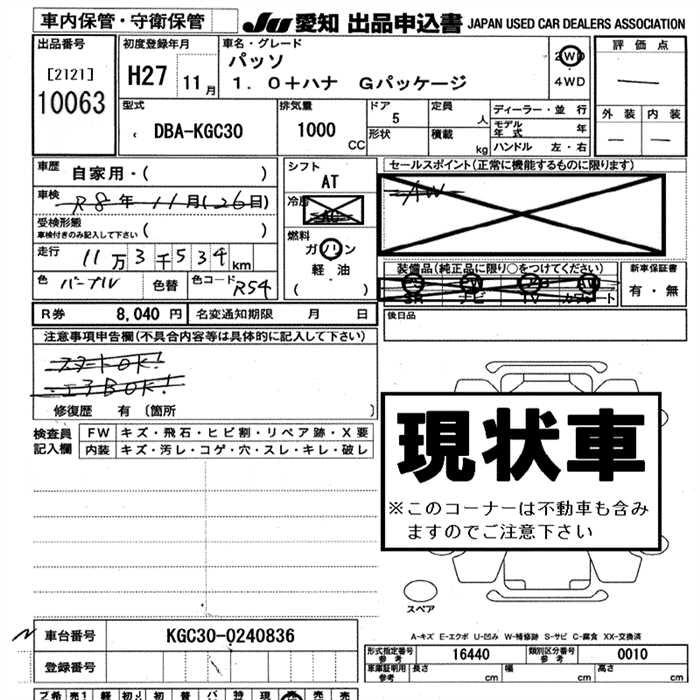 車内保管・守衛保管
JU 愛知 出品申込書 JAPAN USED CAR DEALERS ASSOCIATION
出品番号
[2121]
10063
初度登録年月
H27 11月
車名・グレード
パッソ
1．0＋ハナ Gパッケージ
2WD
4WD
評価点
外装 内装
型式
DBA-KGC30
排気量
1000
CC
ドア
5
形状
定員
人
積載
kg
ディーラー・並行
モデル年式 年
ハンドル 左・右
車歴
自家用・( )
車検
R8年11月(26日)
受検形態
車検付きのみ記入して下さい ( )
走行
11万3千534km
色 パープル 色替 色コード R54
シフト
AT
冷房
AC
燃料
ガソリン
軽油
( )
セールスポイント(正常に機能するものに限ります)
AW
装備品(純正品に限り○をつけてください)
SR ナビ TV カワシート
AW
新車保証書
有・無
R券 8,040円 名変通知期限 月 日
後日品
注意事項申告欄(不具合内容等は具体的に記入して下さい)
スタートOK!
・エアBOK!
修復歴 有 〔箇所 〕
検査員記入欄
FW キズ・飛石・ヒビ割・リペア跡・X要
内装 キズ・汚レ・コゲ・穴・スレ・キレ・破レ
現状車
※このコーナーは不動車も含み
ますのでご注意下さい
スペア
A-キズ E-エクボ U-凹み W-補修跡 S-サビ C-腐食 XX-交換済
車台番号 KGC30-0240836
登録番号
形式指定番号 参考 16440 類別区分番号 参考 0010
車庫証明用 参考 長さ cm 幅 cm 高さ cm